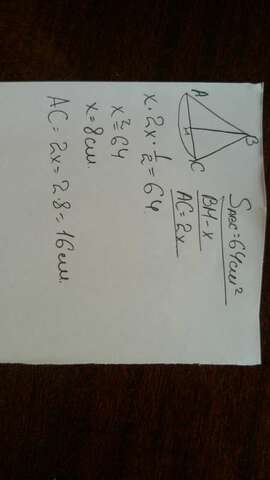 A
B
C
M
S_ABC = 64 см²
BM - x
AC = 2x
x · 2x · 1/2 = 64
x² = 64
x = 8 см.
AC = 2x = 2 · 8 = 16 см.